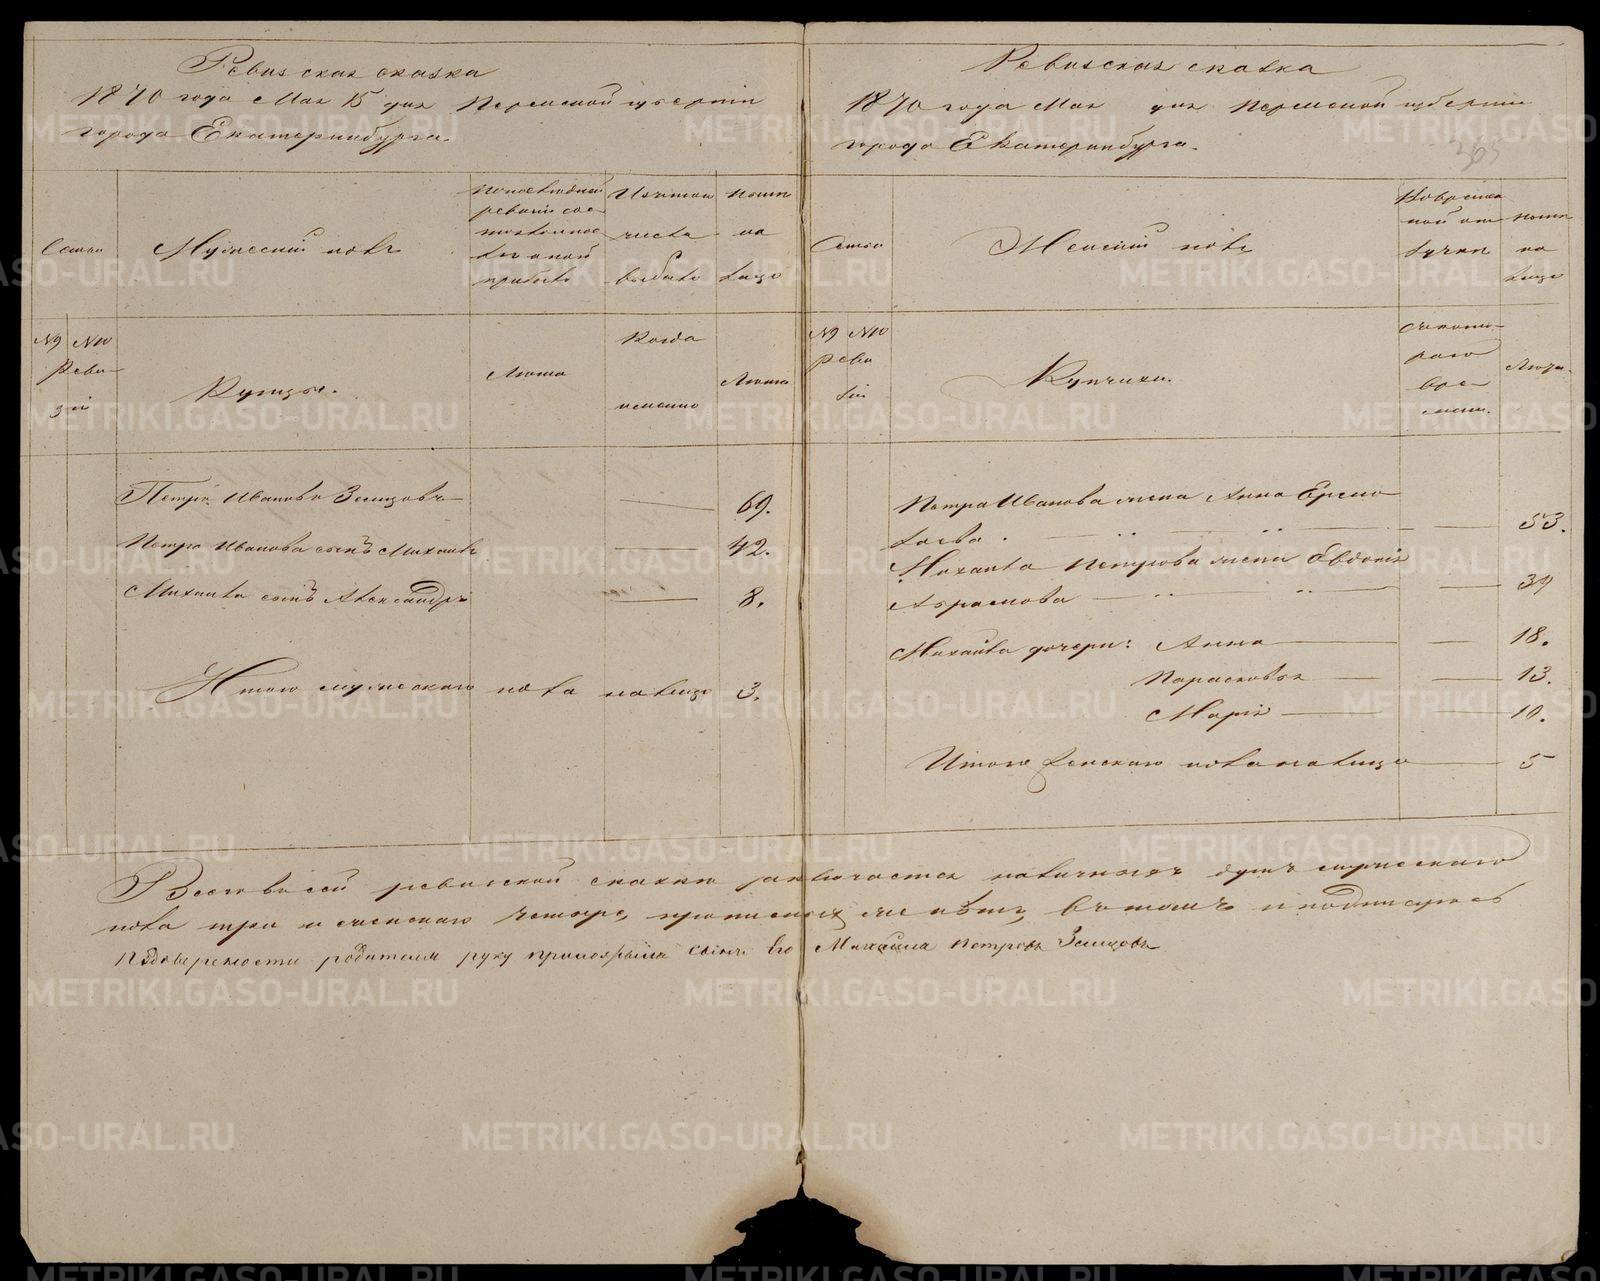 Ревизская сказка
1870 года Мая 15 дня Пермской губернии
города Екатеринбурга.
Семьи
Мужеский полъ
По последней
ревизии сос
прибыло
Изъ того
числа
выбыло
Ныне
на
лицо
№ №
Реви
зiи
Купцы.
Лета
Когда
именно
Лета
Петръ Ивановъ Земцовъ 69.
Петра Иванова сынъ Михаилъ 42.
Михаила сынъ Александръ 8.
Итого мужескаго пола налицо 3.
Ревизская сказка
1870 года Мая дня Пермской губернии
города Екатеринбурга.
265
Семьи
Женский полъ
Во времен
ной от
лучки
Ныне
на
лицо
№ №
Реви
зiи
Купчихи.
Съ кото
раго
вре
мени.
Лета.
Петра Иванова жена Анна Ермо
лаева. 53.
Михаила Петрова жена Евдокiя
Абрамова 39
Михаила дочери: Анна 18.
Парасковья 13.
Марiя 10.
Итого женскаго пола налицо 5
Всего въ сей ревизской сказке заключается наличныхъ душъ мужескаго
пола три и женскаго четыре, прописныхъ же нѣтъ, въ томъ и подписуюсь
По доверенности родителя руку приложилъ сынъ Его Михаила Петровъ Земцовъ
METRIKI.GASO-URAL.RU